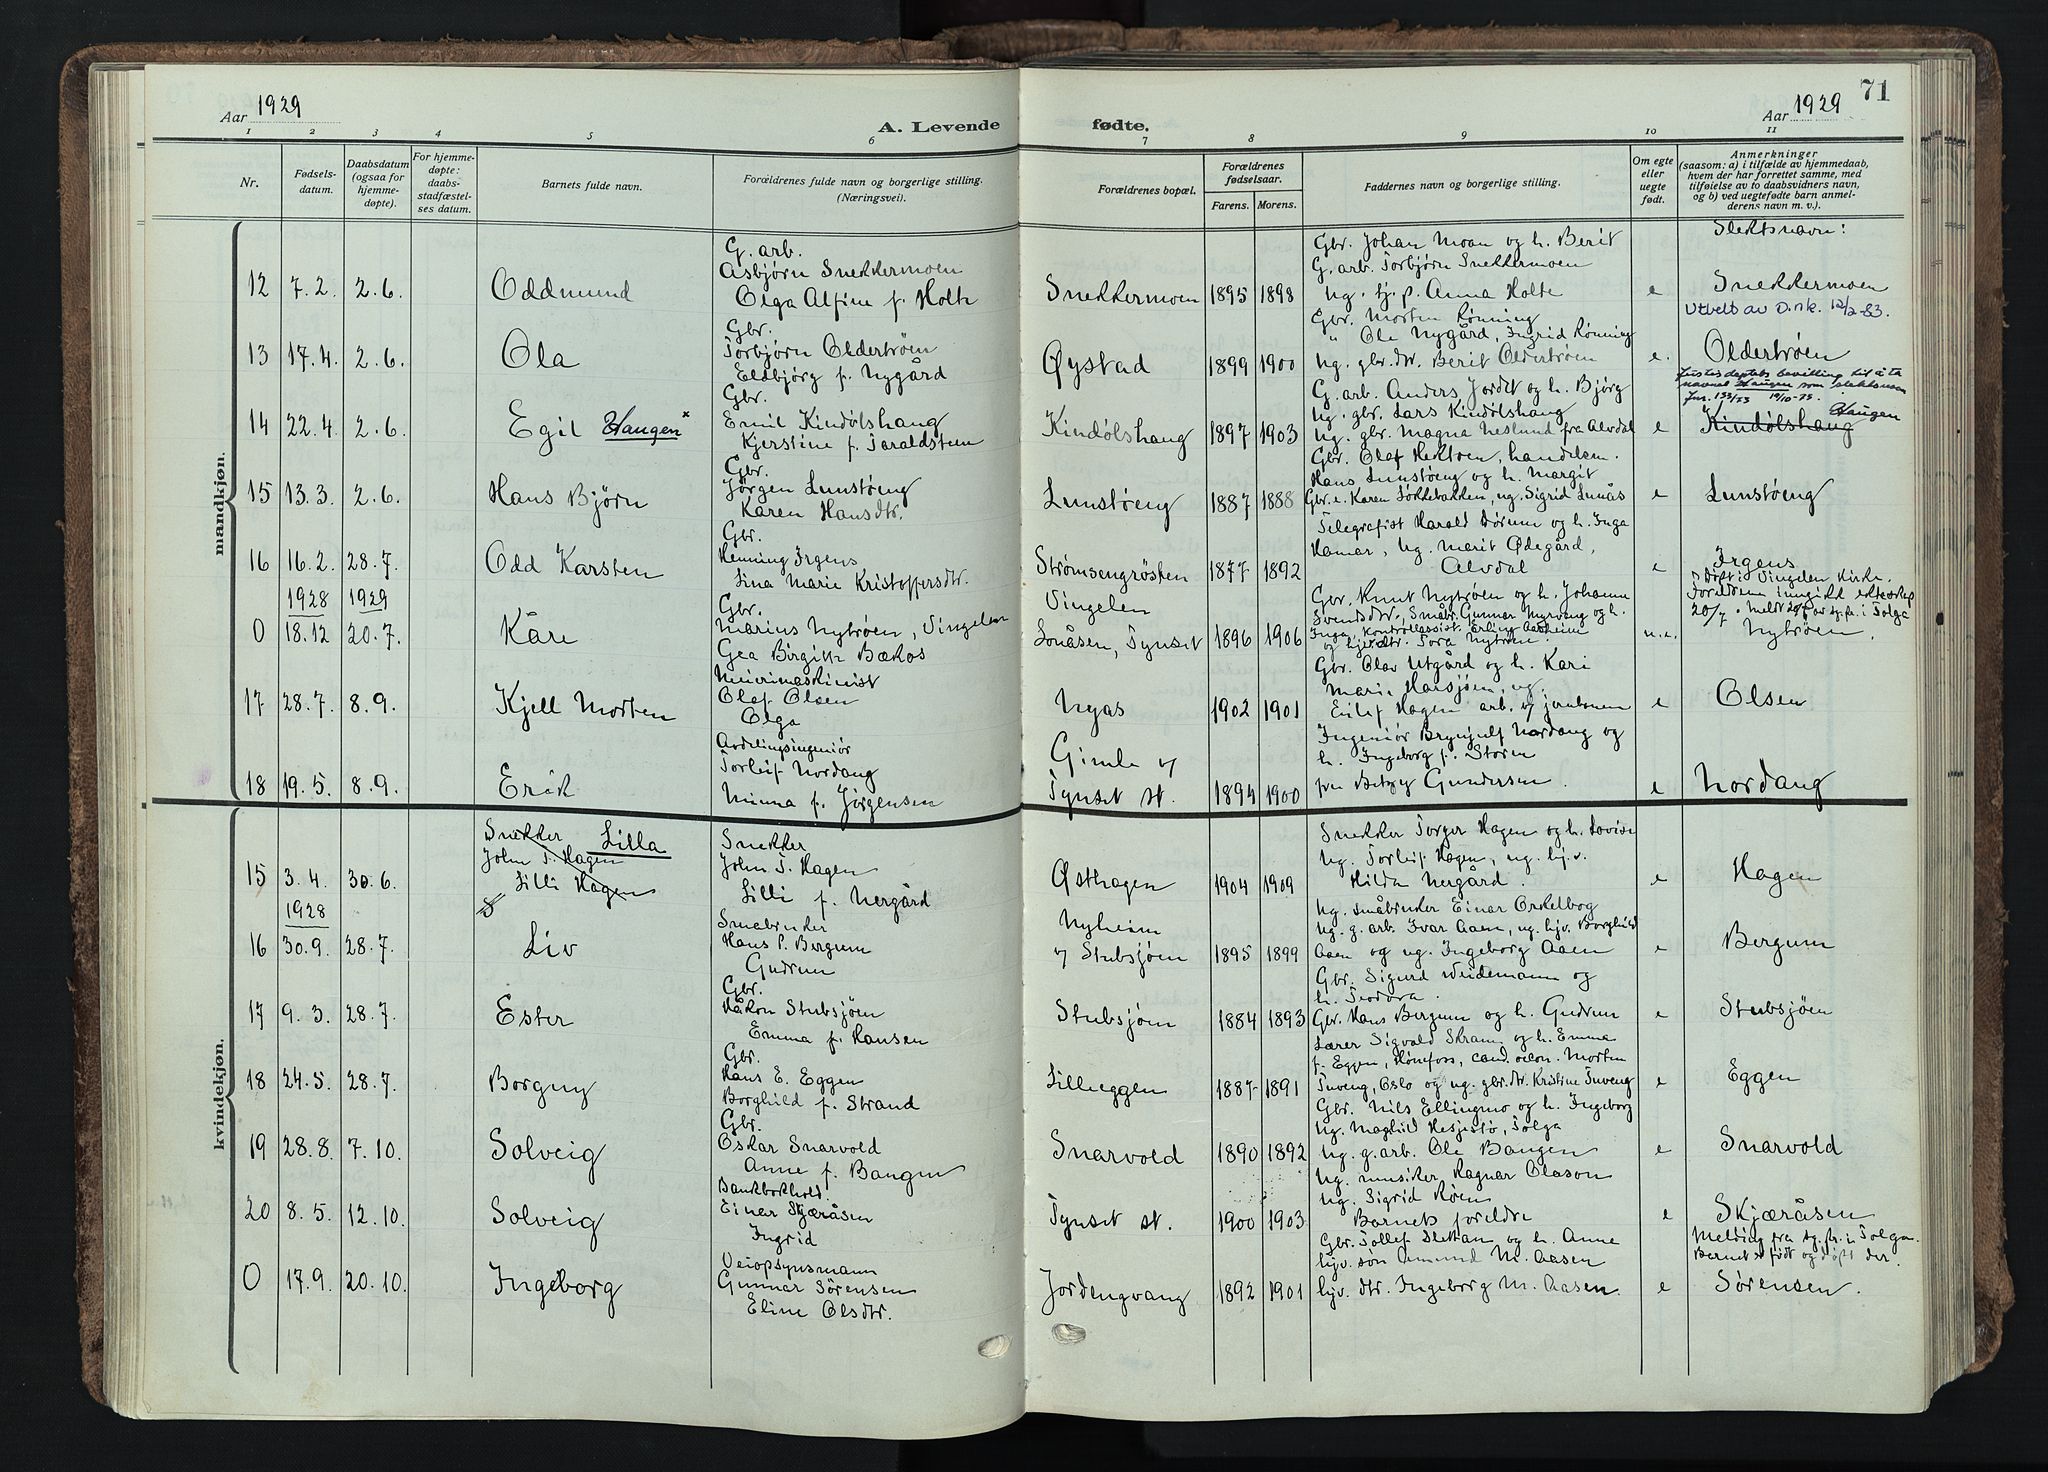 Aar 1929
A. Levende fødte.
Aar 1929
71
1 2 3 4 5 6 7 8 9 10 11
Nr.
Fødsels-
datum.
Daabsdatum
(ogsaa for
hjemme-
døpte).
For hjemme-
døpte:
daabs-
stadfæstel-
ses datum.
Barnets fulde navn.
Forældrenes fulde navn og borgerlige stilling.
(Næringsvei).
Forældrenes bopæl.
Forældrenes
fødselsaar.
Farens. Morens.
Faddernes navn og borgerlige stilling.
Om egte
eller
uegte
født.
Anmerkninger
(saasom: a) i tilfælde av hjemmedaab,
hvem der har forrettet samme, med
tilføielse av to daabsvidners navn,
og b) ved uegtefødte barn anmel-
derens navn m. v.).
Slektsnavn:
mandkjøn.
12 7.2. 2.6. Oddmund
G. arb.
Asbjørn Snekkermoen
Olga Alfine f. Holte
Snekkermoen 1895 1898
Gbr. Johan Moan og h. Berit
G. arb. Torbjørn Snekkermoen
Ug. tj. p. Anna Holte
e Snekkermoen
Utvelt av D.nk. 12/2-83.
13 17.4. 2.6. Ola
Gbr.
Torbjørn Oldertrøen
Eldbjørg f. Nygård
Øystad 1899 1900
Gbr. Morten Rønning
" Ole Nygård, Ingrid Rønning
Ug. gbr. dtr. Berit Oldertrøen
e. Oldertrøen
14 22.4. 2.6. Egil Haugen x
Gbr.
Emil Kindølshaug
Kjerstine f. Taraldsteen
Kindølshaug 1897 1903
G. arb. Anders Jordet og h. Bjørg
Ug. gbr. Lars Kindølshaug
Ug. gbr. Magna Neslund fra Alvdal
e
Justisdeptets bevilling til å ta
navnet Haugen som slektsnavn
Jnr. 133/73 19/10-73.
Haugen
Kindølshaug
15 13.3. 2.6. Hans Bjørn
Gbr.
Jørgen Lunstøeng
Karen Hansdtr.
Lunstøeng 1887 1888
Gbr. Olaf Hektoen, handelsm.
Hans Lunstøeng og h. Margit
Gbr. e. Karen Løkkebakken, ug. Sigrid Lunås
e Lunstøeng
16 16.2. 28.7. Odd Karsten
Gbr.
Henning Irgens
Lina Marie Kristoffersdtr.
Strømsengrøsten 1877 1892
Telegrafist Harald Dørum og h. Inga
Hamar, Ug. Marit Ødegård,
Alvdal
e Irgens
1928 1929
0 18.12 20.7. Kåre
Gbr.
Marius Nytrøen, Vingelen
Gea Birgitte Bækos
Vingelen
Lonåsen, Tynset 1896 1906
Gbr. Knut Nytrøen og h. Johanne
Svendsdtr., Småbr. Gunnar Myreng og h.
Inga, Kontrollassist. Erling Aasheim
og hjv. dtr. Tora Nytrøen
u.e.
Døpt i Vingelen Kirke.
Foreldrene inngikk ekteskap
20/7. Meldt av sp. pr. i Tolga
Nytrøen.
17 28.7. 8.9. Kjell Morten
Meierimaskinist
Olaf Olsen
Olga
Nyås 1902 1901
Gbr. Olav Utgård og h. Kari
Marie Harsjøen, ug.
Eilif Hagen arb. v/ jernbanen
e Olsen
18 19.5. 8.9. Erik
Avdelingsingeniør
Torleif Nordang
Minna f. Jørgensen
Gimle v/
Tynset st. 1894 1900
Ingeniør Brynjulf Nordang og
h. Ingeborg f. Støren
fru Betzy Gundersen.
e Nordang
kvindekjøn.
15 3.4. 30.6.
Snekker Lilla
John T. Hagen
Lilli Hagen
Snekker
John T. Hagen
Lilli f. Nergård
Østhagen 1904 1909
Snekker Torger Hagen og h. Lovise
Ug. Torleif Hagen, ug. hjv.
Hilda Nergård.
e Hagen
1928
16 30.9. 28.7. Liv
Småbruker
Hans P. Bergum
Gudrun
Nyheim
v/ Stubsjøen 1895 1899
Ug. småbruker Einar Orkelbog
Ug. g. arb. Ivar Aaen, ug. hjv. Borghild
Aaen og ug. Ingeborg Aaen
e Bergum
17 9.3. 28.7. Ester
Gbr.
Håkon Stubsjøen
Emma f. Hansen
Stubsjøen 1884 1893
Gbr. Sigurd Weidemann og
h. Teodora.
Gbr. Hans Bergum og h. Gudrun
e Stubsjøen
18 24.5. 28.7. Borgny
Gbr.
Hans E. Eggen
Borghild f. Strand
Lilleeggen 1887 1891
Lærer Sigvald Skram og h. Emma
f. Eggen, Hønefoss, cand. oecon. Morten
Tuveng, Oslo og ug. gbr. dtr. Kristine Tuveng
e Eggen
19 28.8. 7.10. Solveig
Gbr.
Oskar Snarvold
Anne f. Bangen
Snarvold 1890 1892
Gbr. Nils Ellingmo og h. Ingeborg
Ug. Maghild Hesjestø, Tolga
Ug. g. arb. Ole Bangen
e Snarvold
20 8.5. 12.10. Solveig
Bankbokhold.
Einar Skjæråsen
Ingrid
Tynset st. 1900 1903
Ug. musiker Ragnar Olason
Ug. Sigrid Røen
Barnets foreldre
e Skjæråsen
0 17.9. 20.10. Ingeborg
Veiopsynsmann
Gunnar Sørensen
Eline Olsdtr.
Jordengvang 1892 1901
Gbr. Tollef Slettan og h. Anne
hjv. søn Amund M. Aasen
hjv. dtr. Ingeborg M. Aasen
e
Melding fra sp. pr. i Tolga.
Barnet er født og døpt der.
Sørensen.